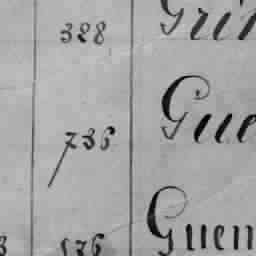 328 Grin
736 Gue
3 176 Guen